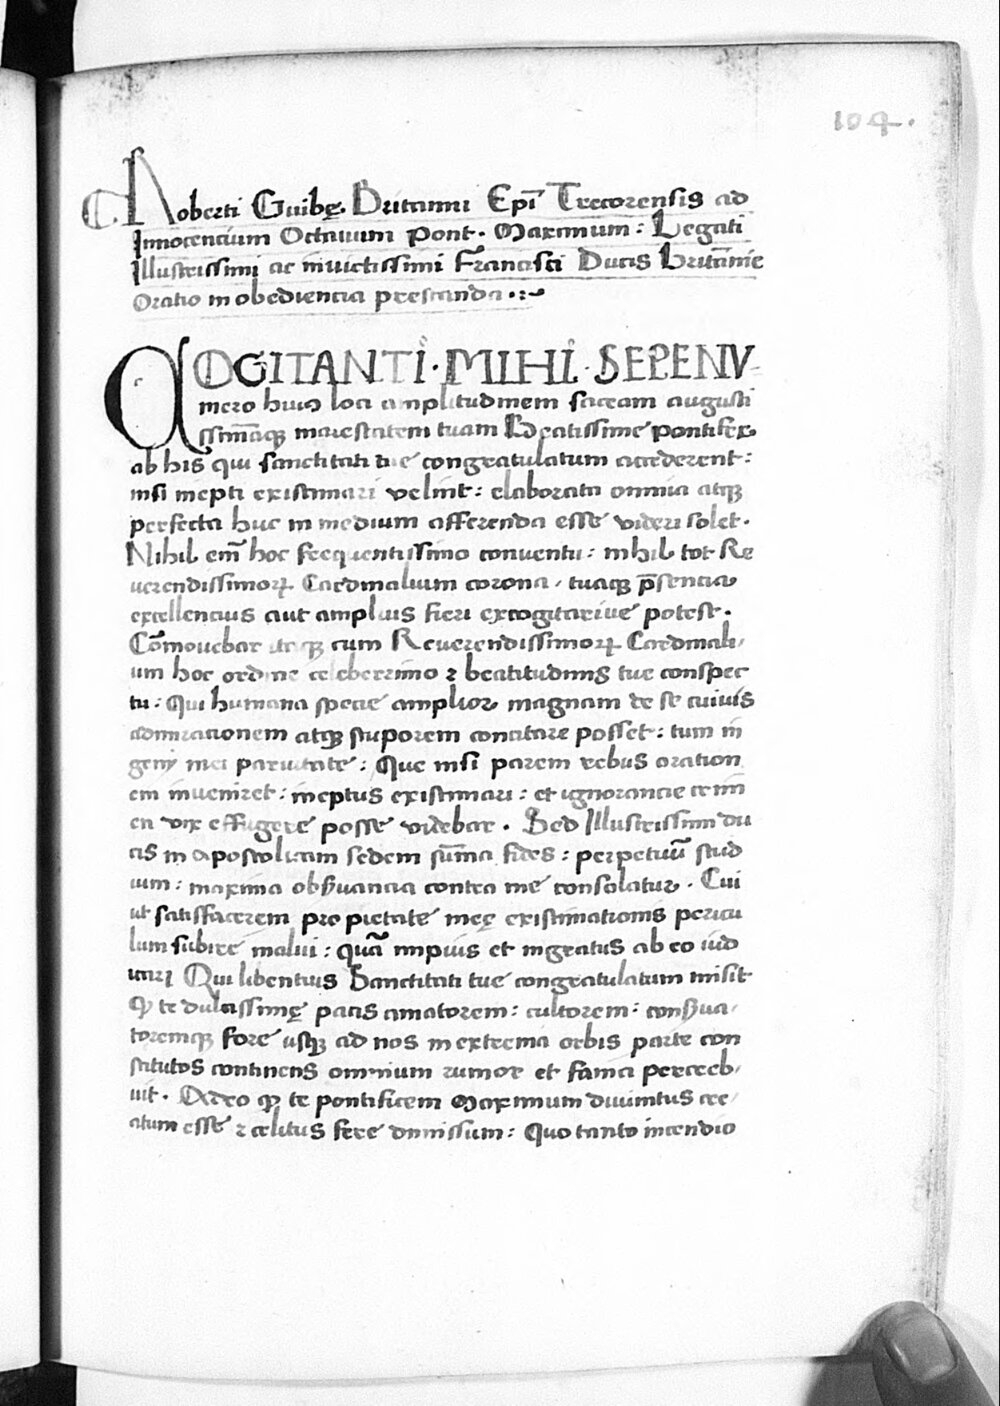 104.
Roberti Guibę. Britanni Epī Trecorensis ad
Innocencium Octauum Pont. Maximum: Legati
Illustrissimi ac inuictissimi Francisci Ducis Britānie
Oratio in obediencia prestanda.
COGITANTI. MIHI. SEPENV
mero huius loci amplitudinem sacram augusti
ssimāqꝫ maiestatem tuam Beatissime pontifex
ab his qui sanctitati tue congratulatum accederent:
nisi inepti existimari velint: elaborata omnia atqꝫ
perfecta huc in medium afferenda esse videri solet.
Nihil em̄ hoc frequentissimo conuentu: nihil tot Re
uerendissimoꝝ Cardinalium corona, tuaqꝫ p̄sencia
excellencius aut amplius fieri excogitariue potest.
Cōmouebar itaqꝫ cum Reuerendissimoꝝ Cardinali,
um hoc ordine celeberrimo ⁊ beatitudinis tue conspec
tu: Qui humana specie amplior magnam de se cuiuis
admiracionem atqꝫ stuporem concitare posset: tum in
genij mei paruitate: Que nisi parem rebus oration
em inueniret: ineptus existimari: et ignorancie crim
en vix effugere posse videbar. Sed Illustrissimi du
cis in apostolicam sedem sūma fides: perpetuū stud
ium: maxima obẞuancia contra me consolatur. Cui
ut satisfacerem pro pietate meę existimationis pericu
lum subire malui: quā impius et ingratus ab eo iud
icari Qui libentius Sanctitati tue congratulatum misit
ꝙ te dulcissimę pacis amatorem: cultorem: conẞua,
toremqꝫ fore usqꝫ ad nos in extrema orbis parte con
stitutos continens omnium rumor et fama percreb,
uit. Adeo ꝙ te pontificem Maximum diuinitus cre,
atum esse ⁊ celitus fere dimissum: Quo tanto incendio